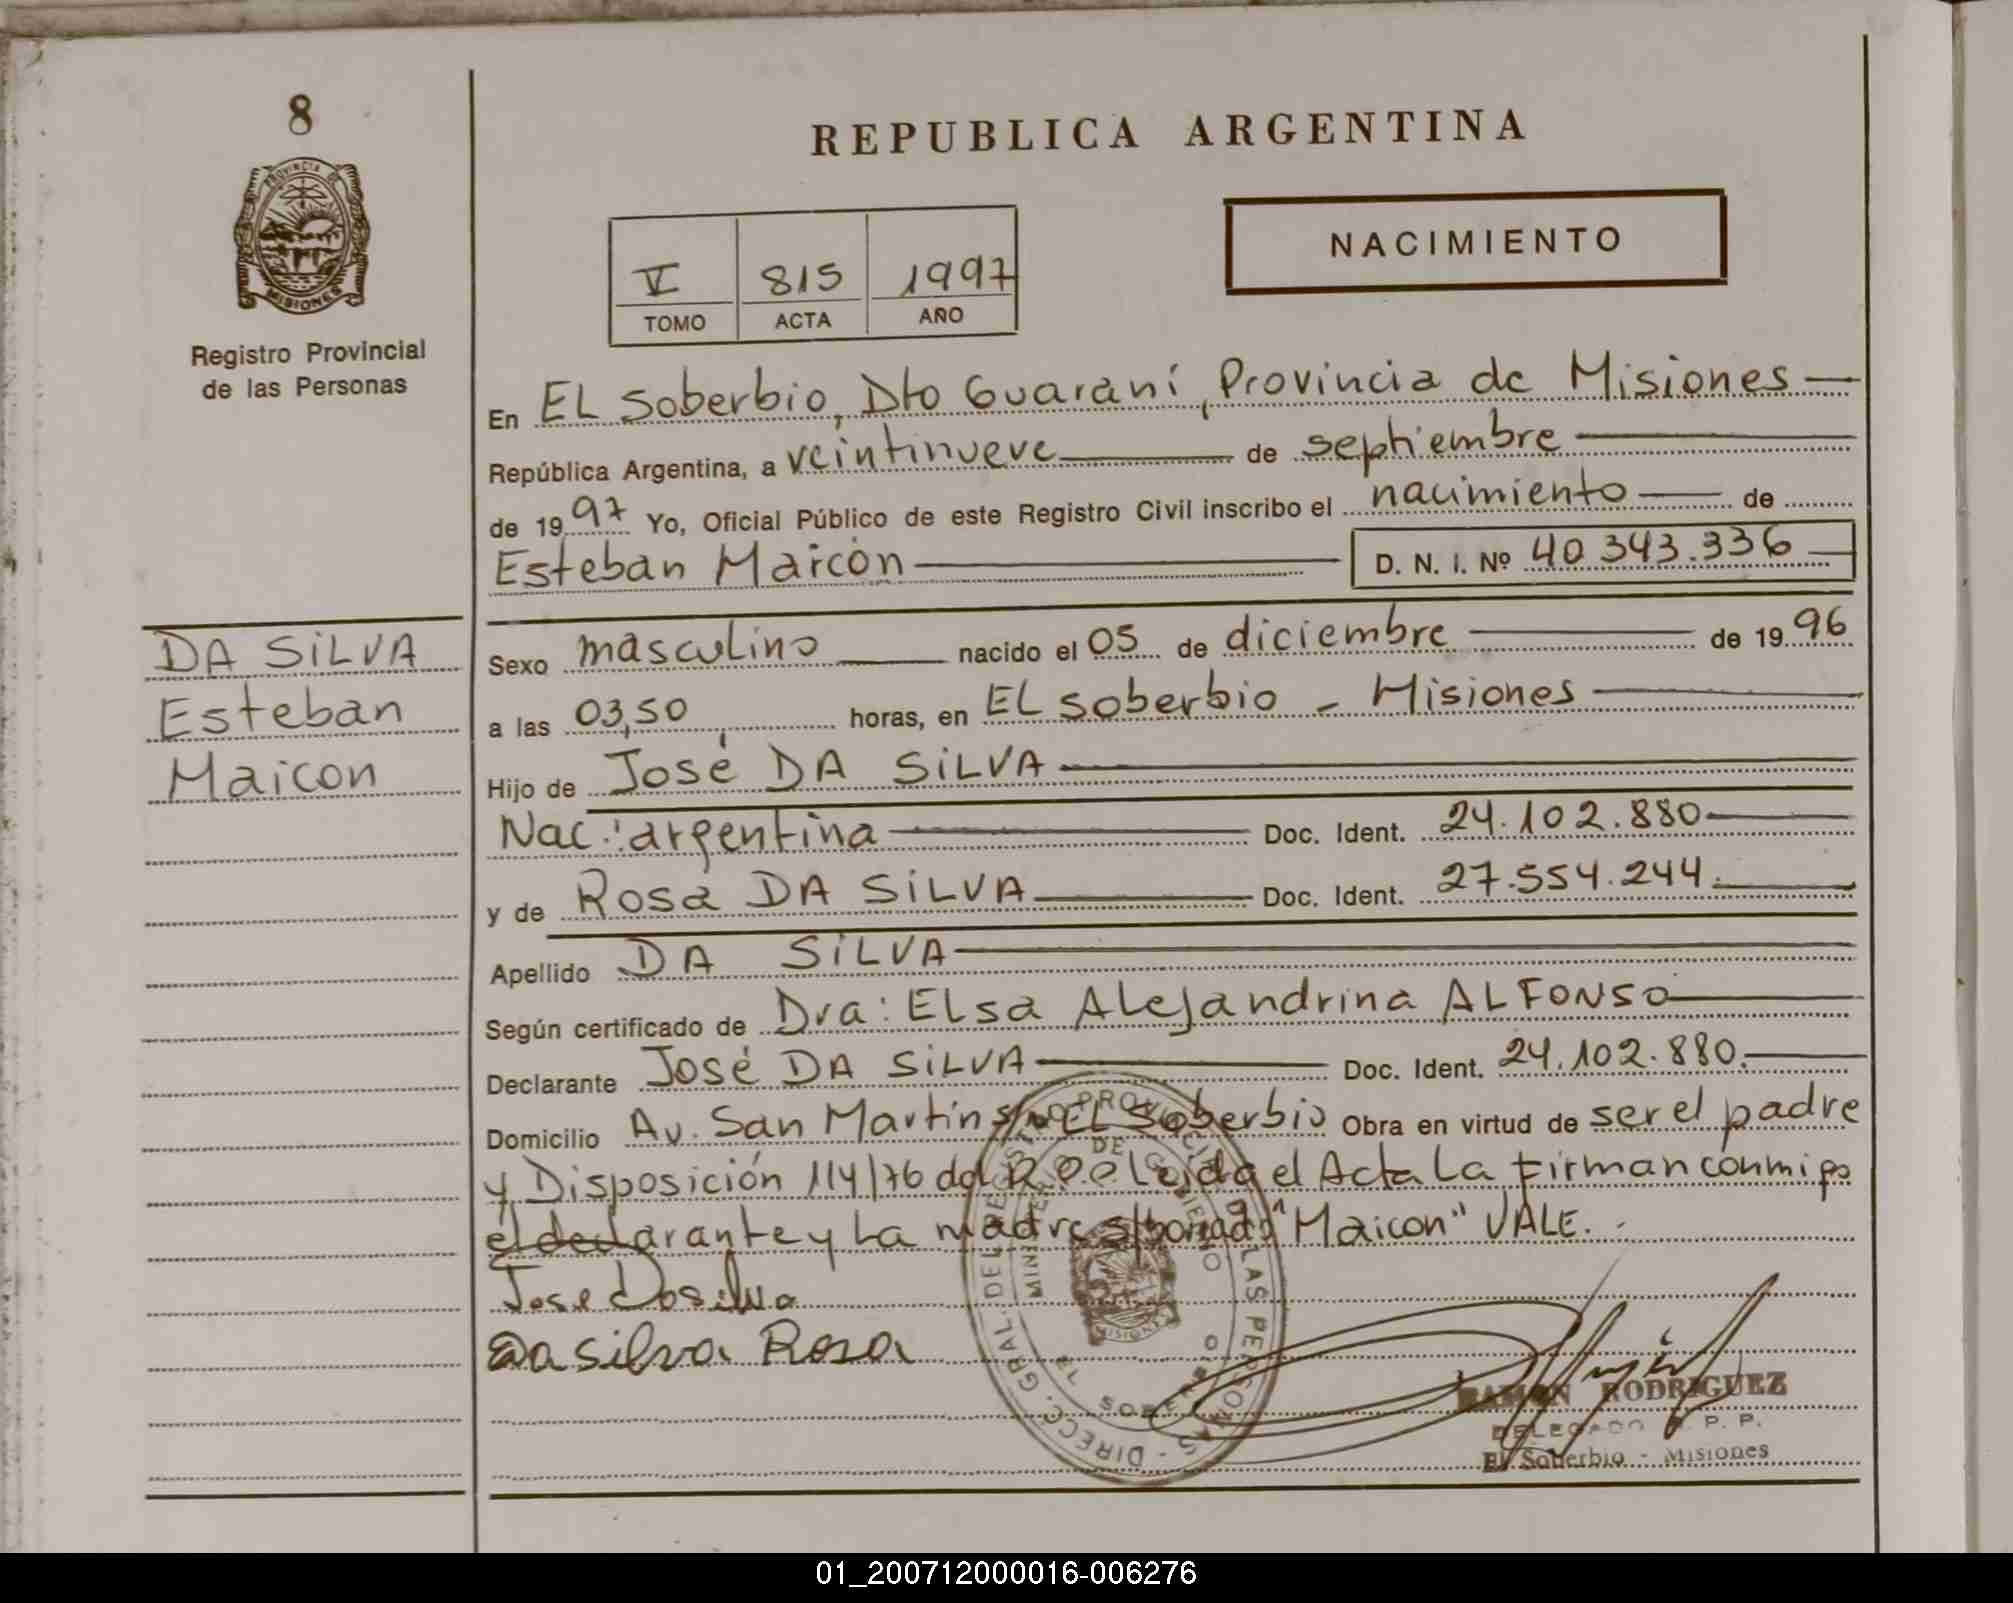 8
PROVINCIA DE
MISIONES
Registro Provincial
de las Personas
DA SiLVA
Esteban
Maicon
REPUBLICA ARGENTINA
NACIMIENTO
V 815 1997
TOMO ACTA AÑO
En EL Soberbio, Dto Guaraní, Provincia de Misiones —
República Argentina, a veintinueve — de septiembre —
de 1997 Yo, Oficial Público de este Registro Civil inscribo el nacimiento — de
Esteban Maicon — D. N. I. Nº 40 343.336 —
Sexo masculino — nacido el 05 de diciembre — de 1996
a las 03,50 horas, en EL Soberbio - Misiones —
Hijo de José DA SiLVA —
Nac: argentina — Doc. Ident. 24.102.880 —
y de Rosa DA SiLVA — Doc. Ident. 27.554.244. —
Apellido DA SiLVA —
Según certificado de Dra: ELsa Alejandrina ALFONSO —
Declarante José DA SiLVA — Doc. Ident. 24.102.880. —
Domicilio Av. San Martín s/n EL Soberbio Obra en virtud de ser el padre
y Disposición 114/76 del R.P.P Leida el Acta La firman conmigo
el declarante y La madre s/borrado "Maicon" VALE.
Jose Dasilva
Da silva Rosa
DIRECC. GRAL. DEL REGISTRO PROVINCIAL DE LAS PERSONAS
MINISTERIO DE GOBIERNO
MISIONES
SOBERBIO
RAMON RODRIGUEZ
DELEGADO R. P. P.
El Soberbio - Misiones
01_200712000016-006276